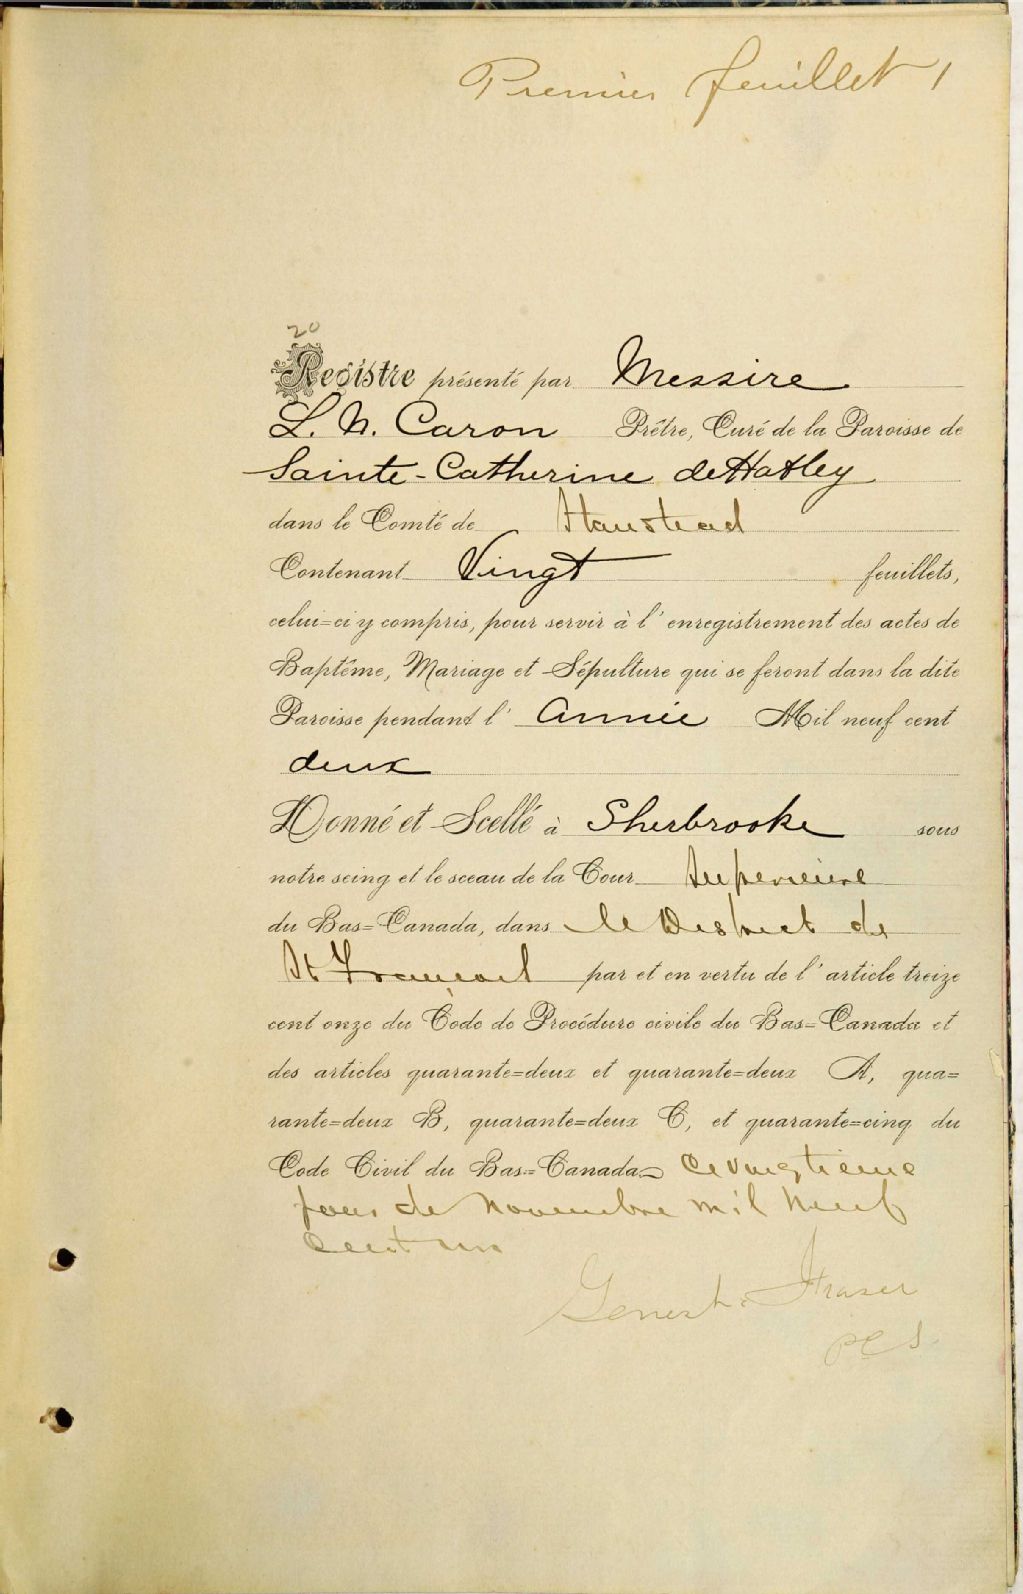 Premier feuillet 1
20
Registre présenté par Messire
L. N. Caron Prêtre, Curé de la Paroisse de
Sainte-Catherine de Hatley
dans le Comté de Stanstead
Contenant Vingt feuillets,
celui=ci y compris, pour servir à l'enregistrement des actes de
Baptême, Mariage et Sépulture qui se feront dans la dite
Paroisse pendant l'année Mil neuf cent
deux
Donné et Scellé à Sherbrooke sous
notre seing et le sceau de la Cour Superieure
du Bas=Canada, dans le District de
St François par et en vertu de l'article treize
cent onze du Code de Procédure civile du Bas=Canada et
des articles quarante=deux et quarante=deux A, qua=
rante=deux B, quarante=deux C, et quarante=cinq du
Code Civil du Bas=Canada ce vingtieme
jour de Novembre mil neuf
cent un
Genest & Fraser
PCS